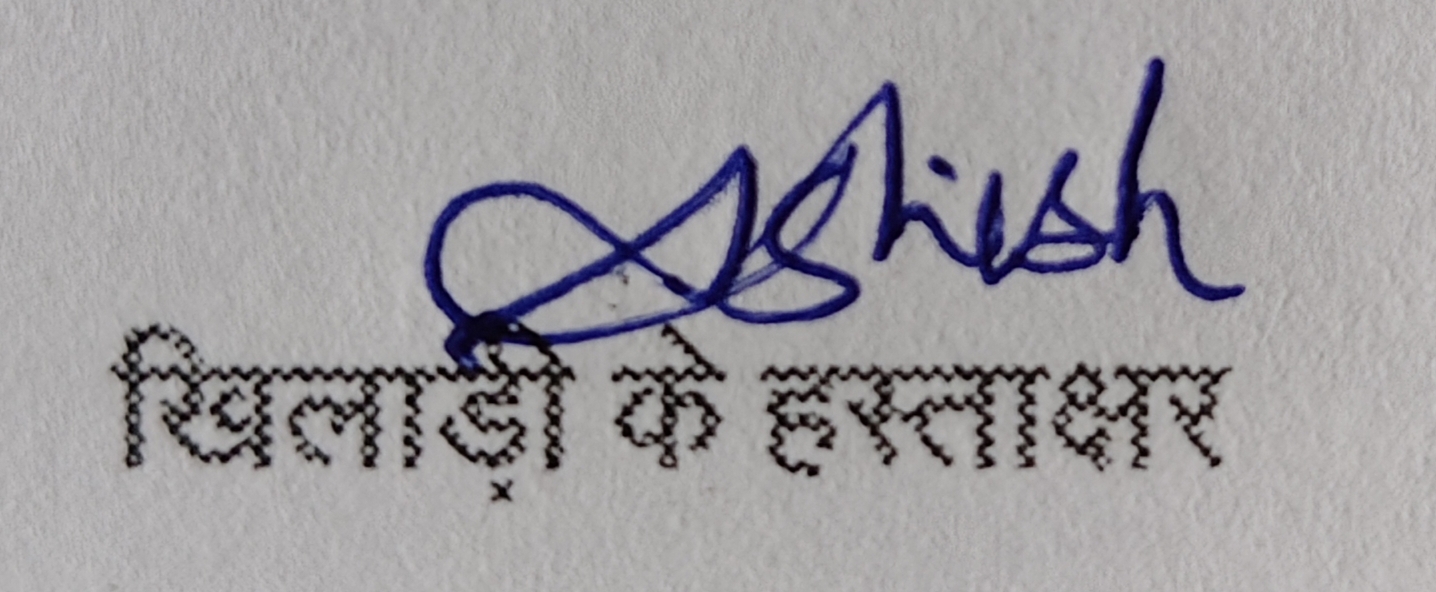 Ashish
खिलाड़ी के हस्ताक्षर